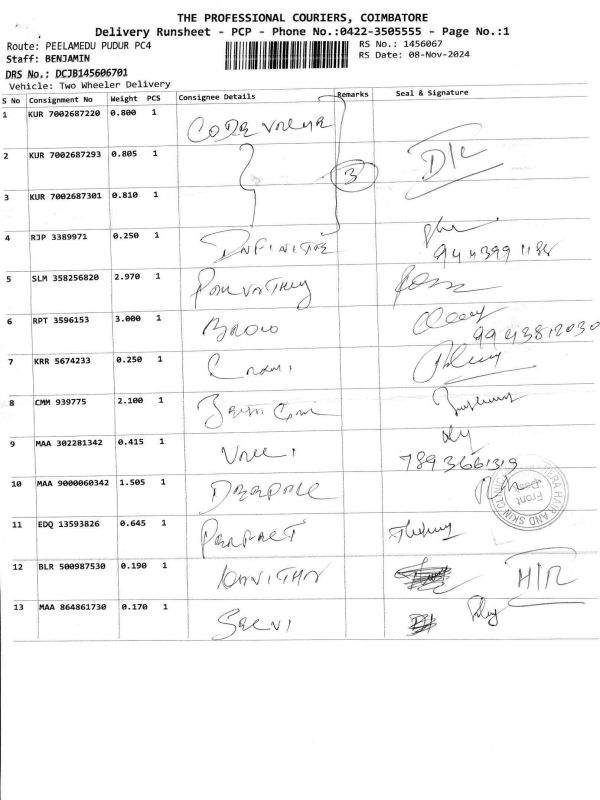 THE PROFESSIONAL COURIERS, COIMBATORE
Delivery Runsheet - PCP - Phone No.:0422-3505555 - Page No.:1
Route: PEELAMEDU PUDUR PC4
RS No.: 1456067
Staff: BENJAMIN
RS Date: 08-Nov-2024
DRS No.: DCJB145606701
Vehicle: Two Wheeler Delivery
S No Consignment No Weight PCS Consignee Details Remarks Seal & Signature
1 KUR 7002687220 0.800 1
2 KUR 7002687293 0.805 1 3 D/C
3 KUR 7002687301 0.810 1
4 RJP 3389971 0.250 1 INFINITE
5 SLM 358256820 2.970 1
6 RPT 3596153 3.000 1 9943812030
7 KRR 5674233 0.250 1
8 CMM 939775 2.100 1
9 MAA 302281342 0.415 1 7893661319
10 MAA 9000060342 1.505 1
11 EDQ 13593826 0.645 1 PERFECT
12 BLR 500987530 0.190 1 KAVITHA H/R
13 MAA 864861730 0.170 1 SELVI
Front
Desk
HAIR AND SKIN CLINIC